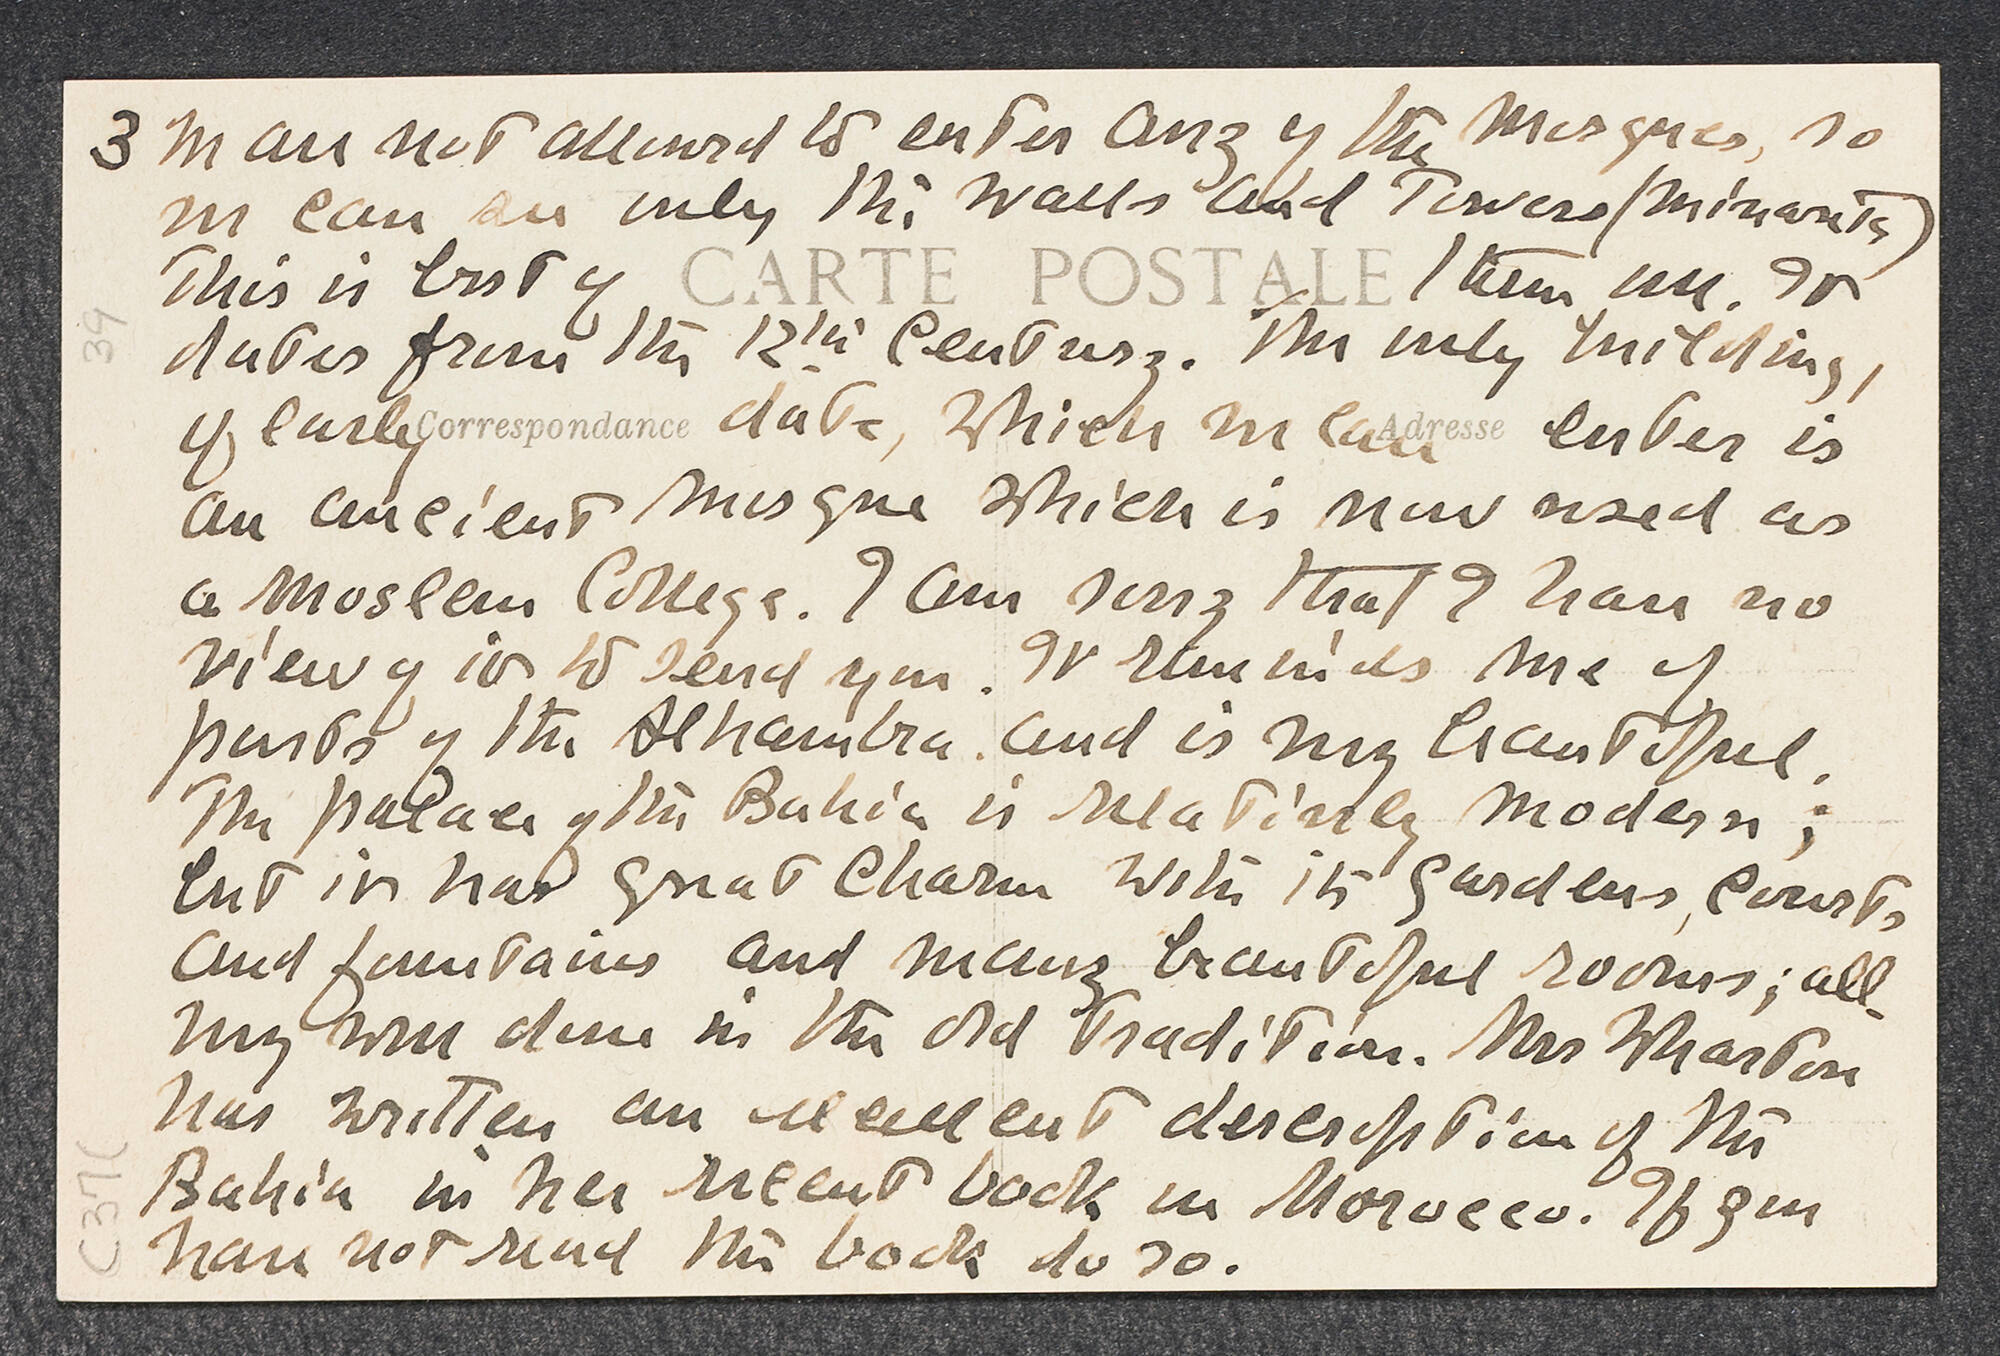 3 We are not allowed to enter any of the Mosques, so
we can see only the walls and Towers (minarets)
CARTE POSTALE
This is best of them all. It
dates from the 12th Century. The only building,
Correspondance Adresse
of early date, which we can enter is
an ancient Mosque which is now used as
a Moslem College. I am sorry that I have no
view of it to send you. It reminds me of
parts of the Alhambra. and is very beautiful.
The palace of the Bahia is relatively modern;
but it has great charm with its gardens, courts
and fountains and many beautiful rooms; all
very well done in the old tradition. Mrs Wharton
has written an excellent description of the
Bahia in her recent book on Morocco. If you
have not read the book do so.
39
C371